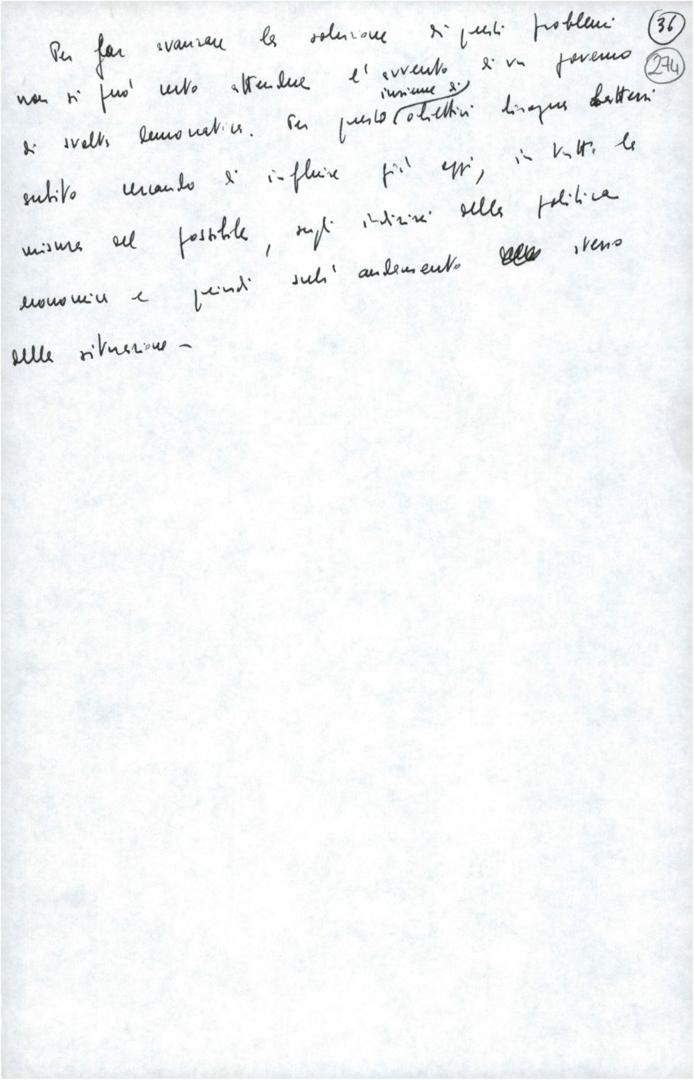 Per far avanzare la soluzione di questi problemi 36
non si può certo attendere l'avvento di un governo 274
insieme di
di svolta democratica. Per questo obiettivi bisogna battersi
subito cercando di influire già oggi, in tutta la
misura del possibile, sugli indirizzi della politica
economica e quindi sull'andamento stesso
della situazione -